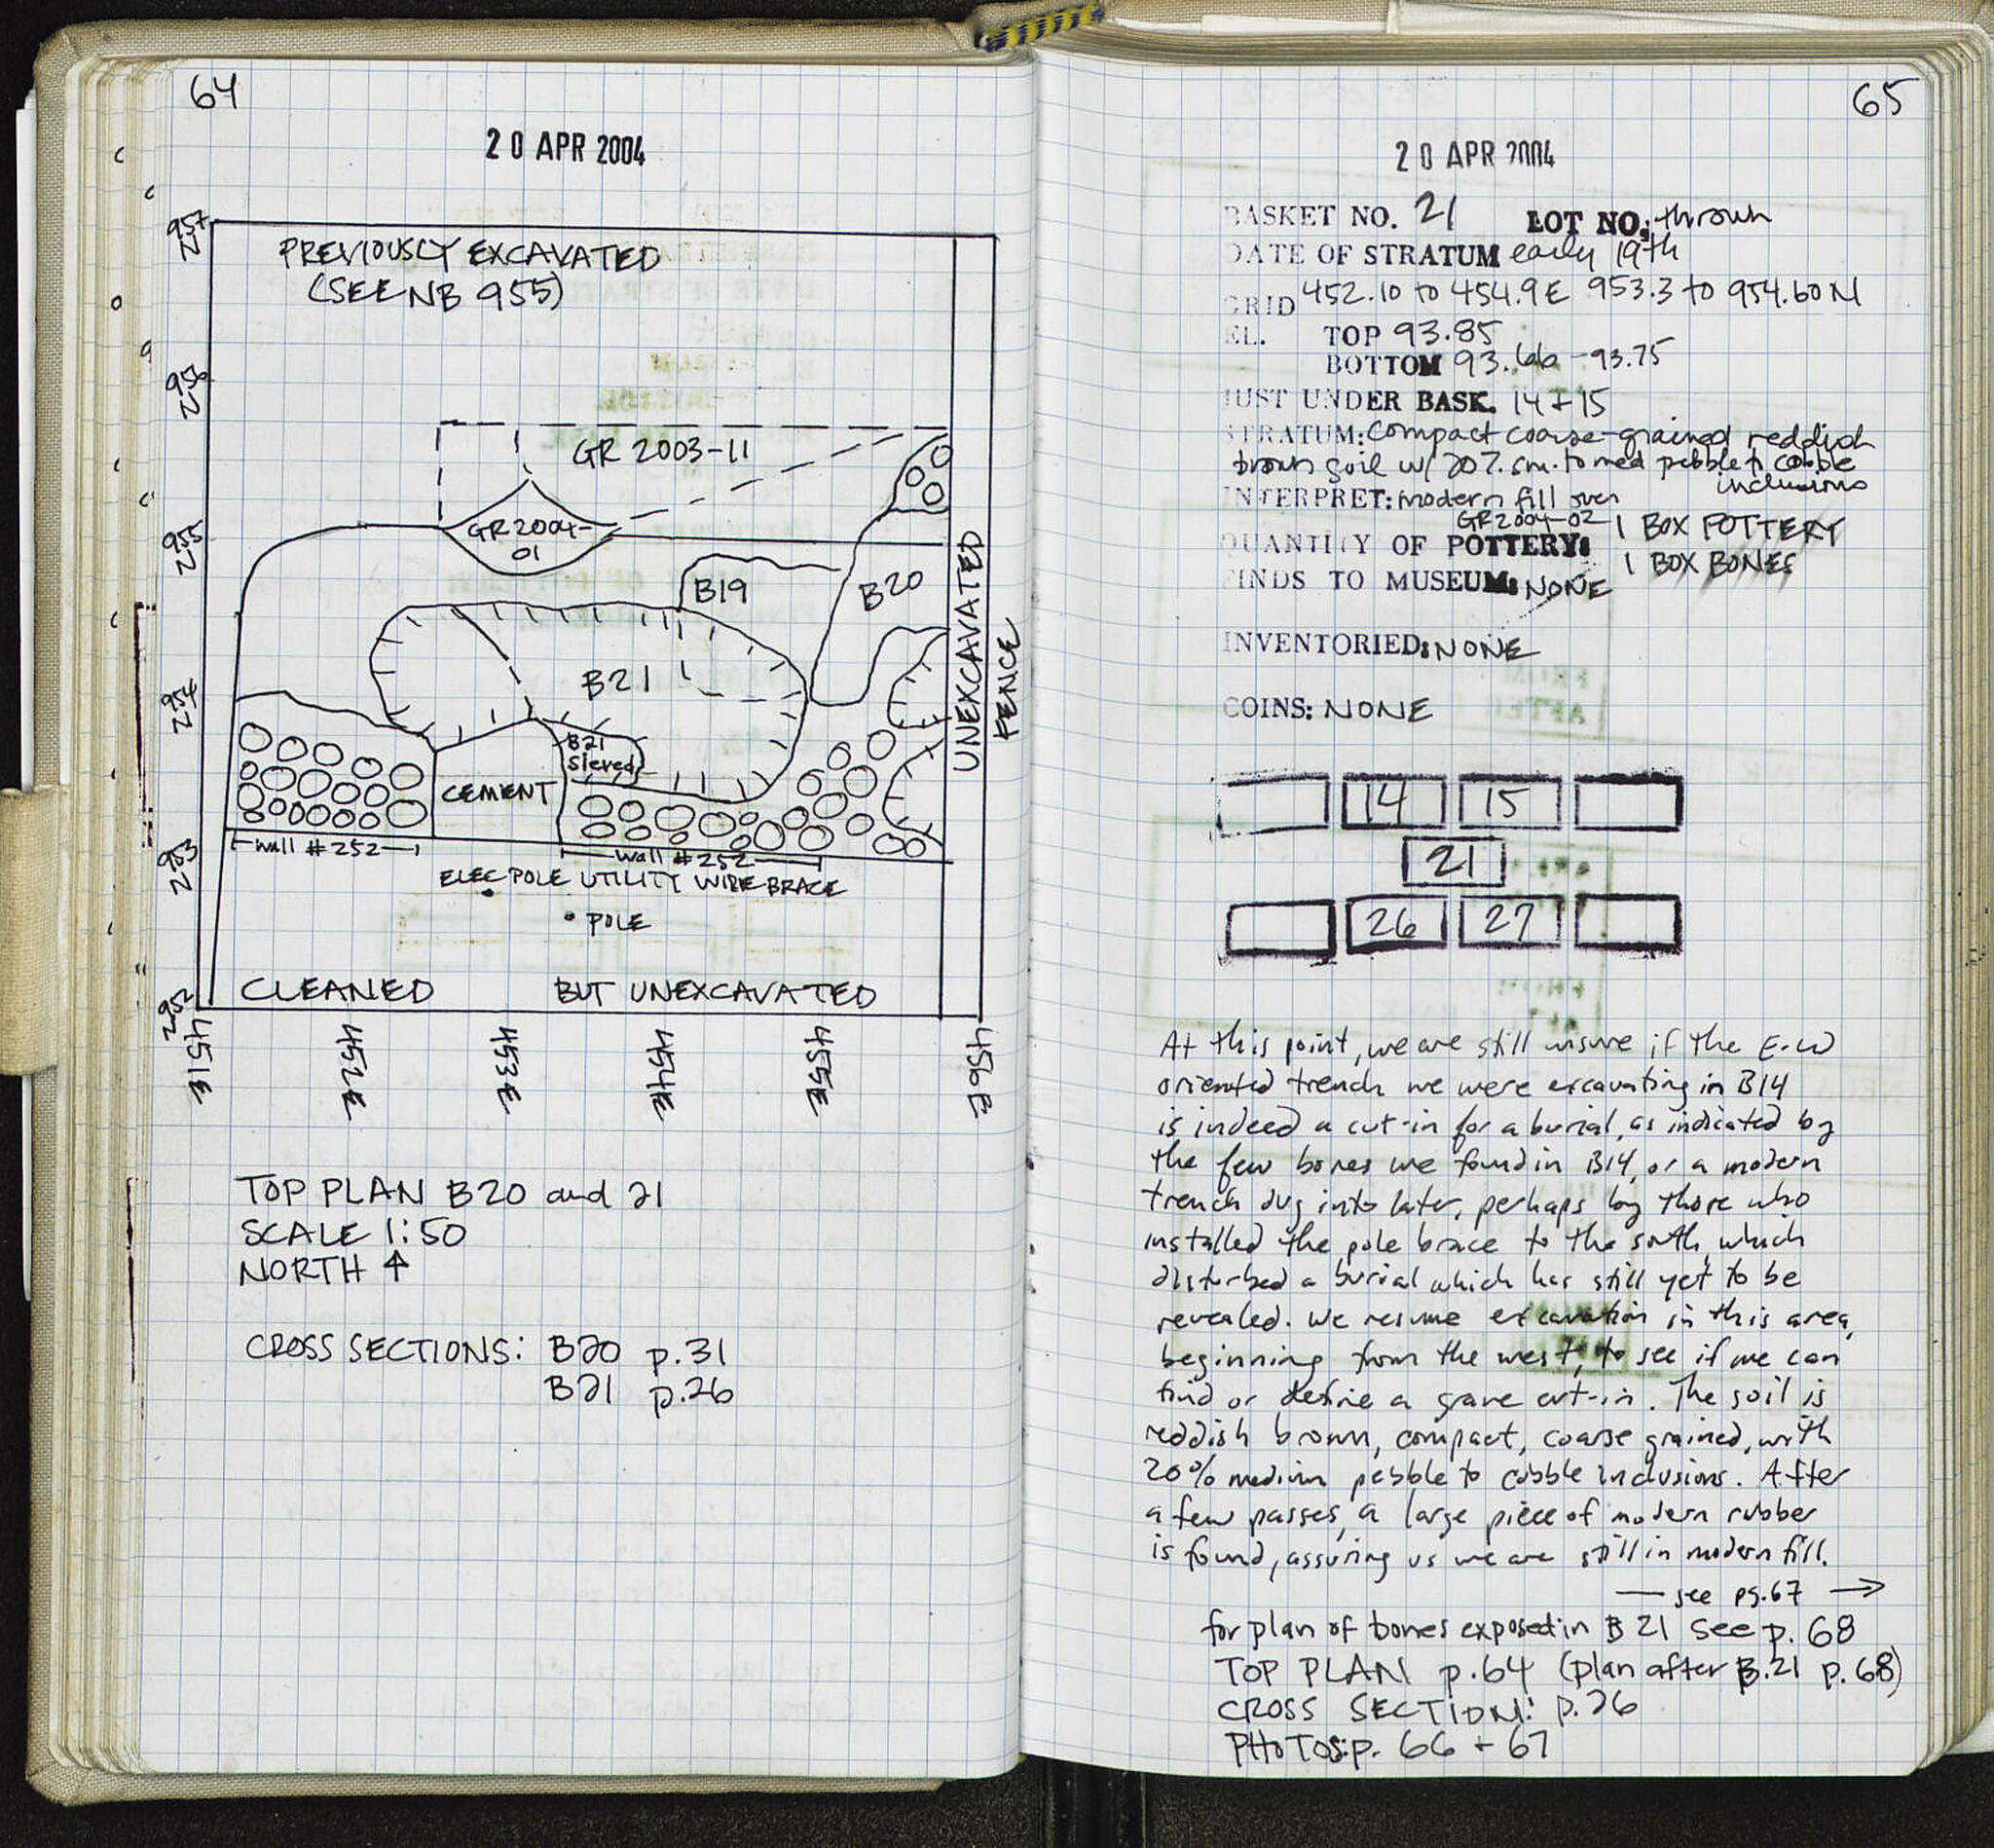 64
20 APR 2004
957
N
PREVIOUSLY EXCAVATED
(SEE NB 955)
956
N
GR 2003-11
955
N
GR 2004-
01
B19
B20
UNEXCAVATED
FENCE
954
N
B21
B21
Sieved
CEMENT
953
N
wall #252
wall #252
ELEC POLE UTILITY WIRE BRACE
POLE
CLEANED BUT UNEXCAVATED
952
N
451E
452E
453E
454E
455E
456E
TOP PLAN B20 and 21
SCALE 1:50
NORTH ↑
CROSS SECTIONS: B20 p.31
B21 p.26
65
20 APR 2004
BASKET NO. 21 LOT NO: thrown
DATE OF STRATUM early 19th
GRID 452.10 to 454.9E 953.3 to 954.60N
EL. TOP 93.85
BOTTOM 93.66 - 93.75
JUST UNDER BASK. 14 + 15
STRATUM: compact coarse-grained reddish
brown soil w/ 20% sm. to med pebble to cobble
inclusions
INTERPRET: modern fill over
GR2004-02
QUANTITY OF POTTERY: 1 BOX POTTERY
1 BOX BONES
FINDS TO MUSEUM: NONE
INVENTORIED: NONE
COINS: NONE
14 15
21
26 27
At this point, we are still unsure if the E-W
oriented trench we were excavating in B14
is indeed a cut-in for a burial, as indicated by
the few bones we found in B14, or a modern
trench dug into later, perhaps by those who
installed the pole brace to the south, which
disturbed a burial which has still yet to be
revealed. We resume excavation in this area,
beginning from the west, to see if we can
find or define a grave cut-in. The soil is
reddish brown, compact, coarse grained, with
20% medium pebble to cobble inclusions. After
a few passes, a large piece of modern rubber
is found, assuring us we are still in modern fill.
— see pg.67 →
for plan of bones exposed in B 21 see p. 68
TOP PLAN p.64 (plan after B.21 p.68)
CROSS SECTION: p.26
PHOTOS: p. 66 + 67